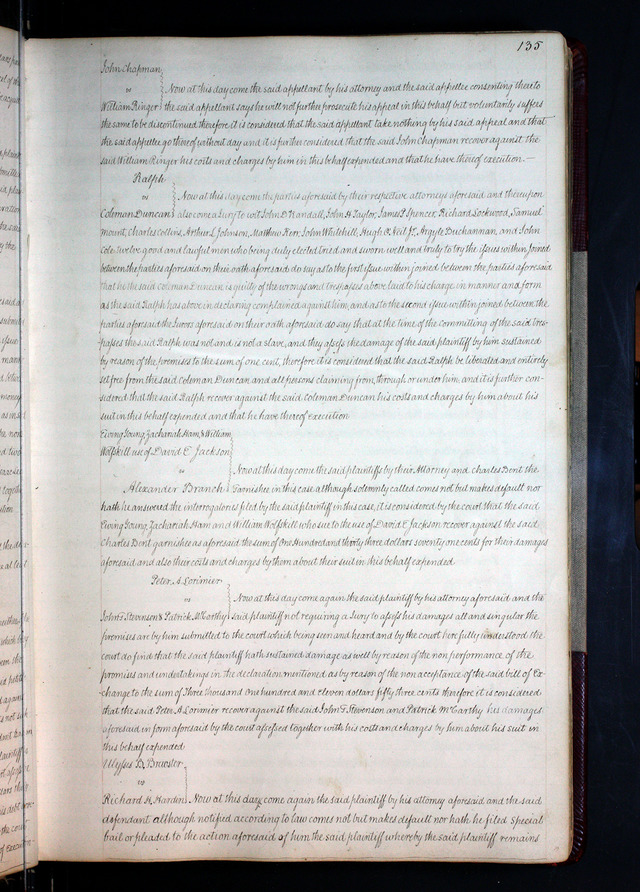 135
John Chapman
vs Now at this day come the said appellant by his attorney and the said appellee consenting thereto
William Ringer the said appellant says he will not further prosecute his appeal in this behalf but voluntarily suffers
the same to be discontinued therefore it is considered that the said appellant take nothing by his said appeal and that
the said appellee go thereof without day and it is further considered that the said John Chapman recover against the
said William Ringer his costs and charges by him in this behalf expended and that he have thereof execution.—
Ralph
vs Now at this day come the parties aforesaid by their respective attorneys aforesaid and thereupon
Coleman Duncan also come a Jury to wit John D. Randall, John H Taylor, James P Spencer, Richard Lockwood, Samuel
Mount, Charles Collins, Arthur L Johnson, Matthew Kerr, John Whitehill, Hugh O.Neil Jr, Argyle Buchannan, and John
Cole twelve good and lawful men who being duly elected tried and sworn well and truly to try the issues within joined
between the parties aforesaid on their oath aforesaid do say as to the first issue within joined between the parties aforesaid
that he the said Coleman Duncan is guilty of the wrongs and trespasses above laid to his charge in manner and form
as the said Ralph has above in declaring complained against him, and as to the second issue within joined between the
parties aforesaid the Jurors aforesaid on their oath aforesaid do say that at the time of the committing of the said tres-
passes the said Ralph was not and is not a slave, and they assess the damage of the said plaintiff by him sustained
by reason of the premises to the sum of one cent, therefore it is considered that the said Ralph be liberated and entirely
set free from the said Coleman Duncan and all persons claiming from, through or under him, and it is further con-
sidered that the said Ralph recover against the said Coleman Duncan his costs and charges by him about his
suit in this behalf expended and that he have thereof execution
Ewing Young, Zachariah Ham, & William
Wolfskill use of David E Jackson
vs Now at this day come the said plaintiffs by their Attorney and Charles Bent the
Alexander Branch Garnishee in this case although solemnly called comes not but makes default nor
hath he answered the interrogatories filed by the said plaintiff in this case, it is considered by the court that the said
Ewing Young, Zachariah Ham and William Wolfskill who sue to the use of David E Jackson recover against the said
Charles Bent garnishee as aforesaid the sum of One Hundred and thirty three dollars seventy one cents for their damages
aforesaid and also their costs and charges by them about their suit in this behalf expended
Peter A. Lorimier
vs Now at this day come again the said plaintiff by his attorney aforesaid and the
John F Stevenson & Patrick McCarthy said plaintiff not requiring a Jury to assess his damages all and singular the
premises are by him submitted to the court which being seen and heard and by the court here fully understood the
court do find that the said plaintiff hath sustained damage as well by reason of the non performance of the
promises and undertakings in the declaration mentioned as by reason of the non acceptance of the said bill of Ex-
change to the sum of Three Thousand One hundred and eleven dollars fifty three cents therefore it is considered
that the said Peter A Lorimier recover against the said John F Stevenson and Patrick McCarthy his damages
aforesaid in form aforesaid by the court assessed together with his costs and charges by him about his suit in
this behalf expended
Ulysses B. Brewster
vs
Richard H. Harden Now at this day come again the said plaintiff by his attorney aforesaid and the said
defendant although notified according to law comes not but makes default nor hath he filed special
bail or pleaded to the action aforesaid of him the said plaintiff whereby the said plaintiff remains